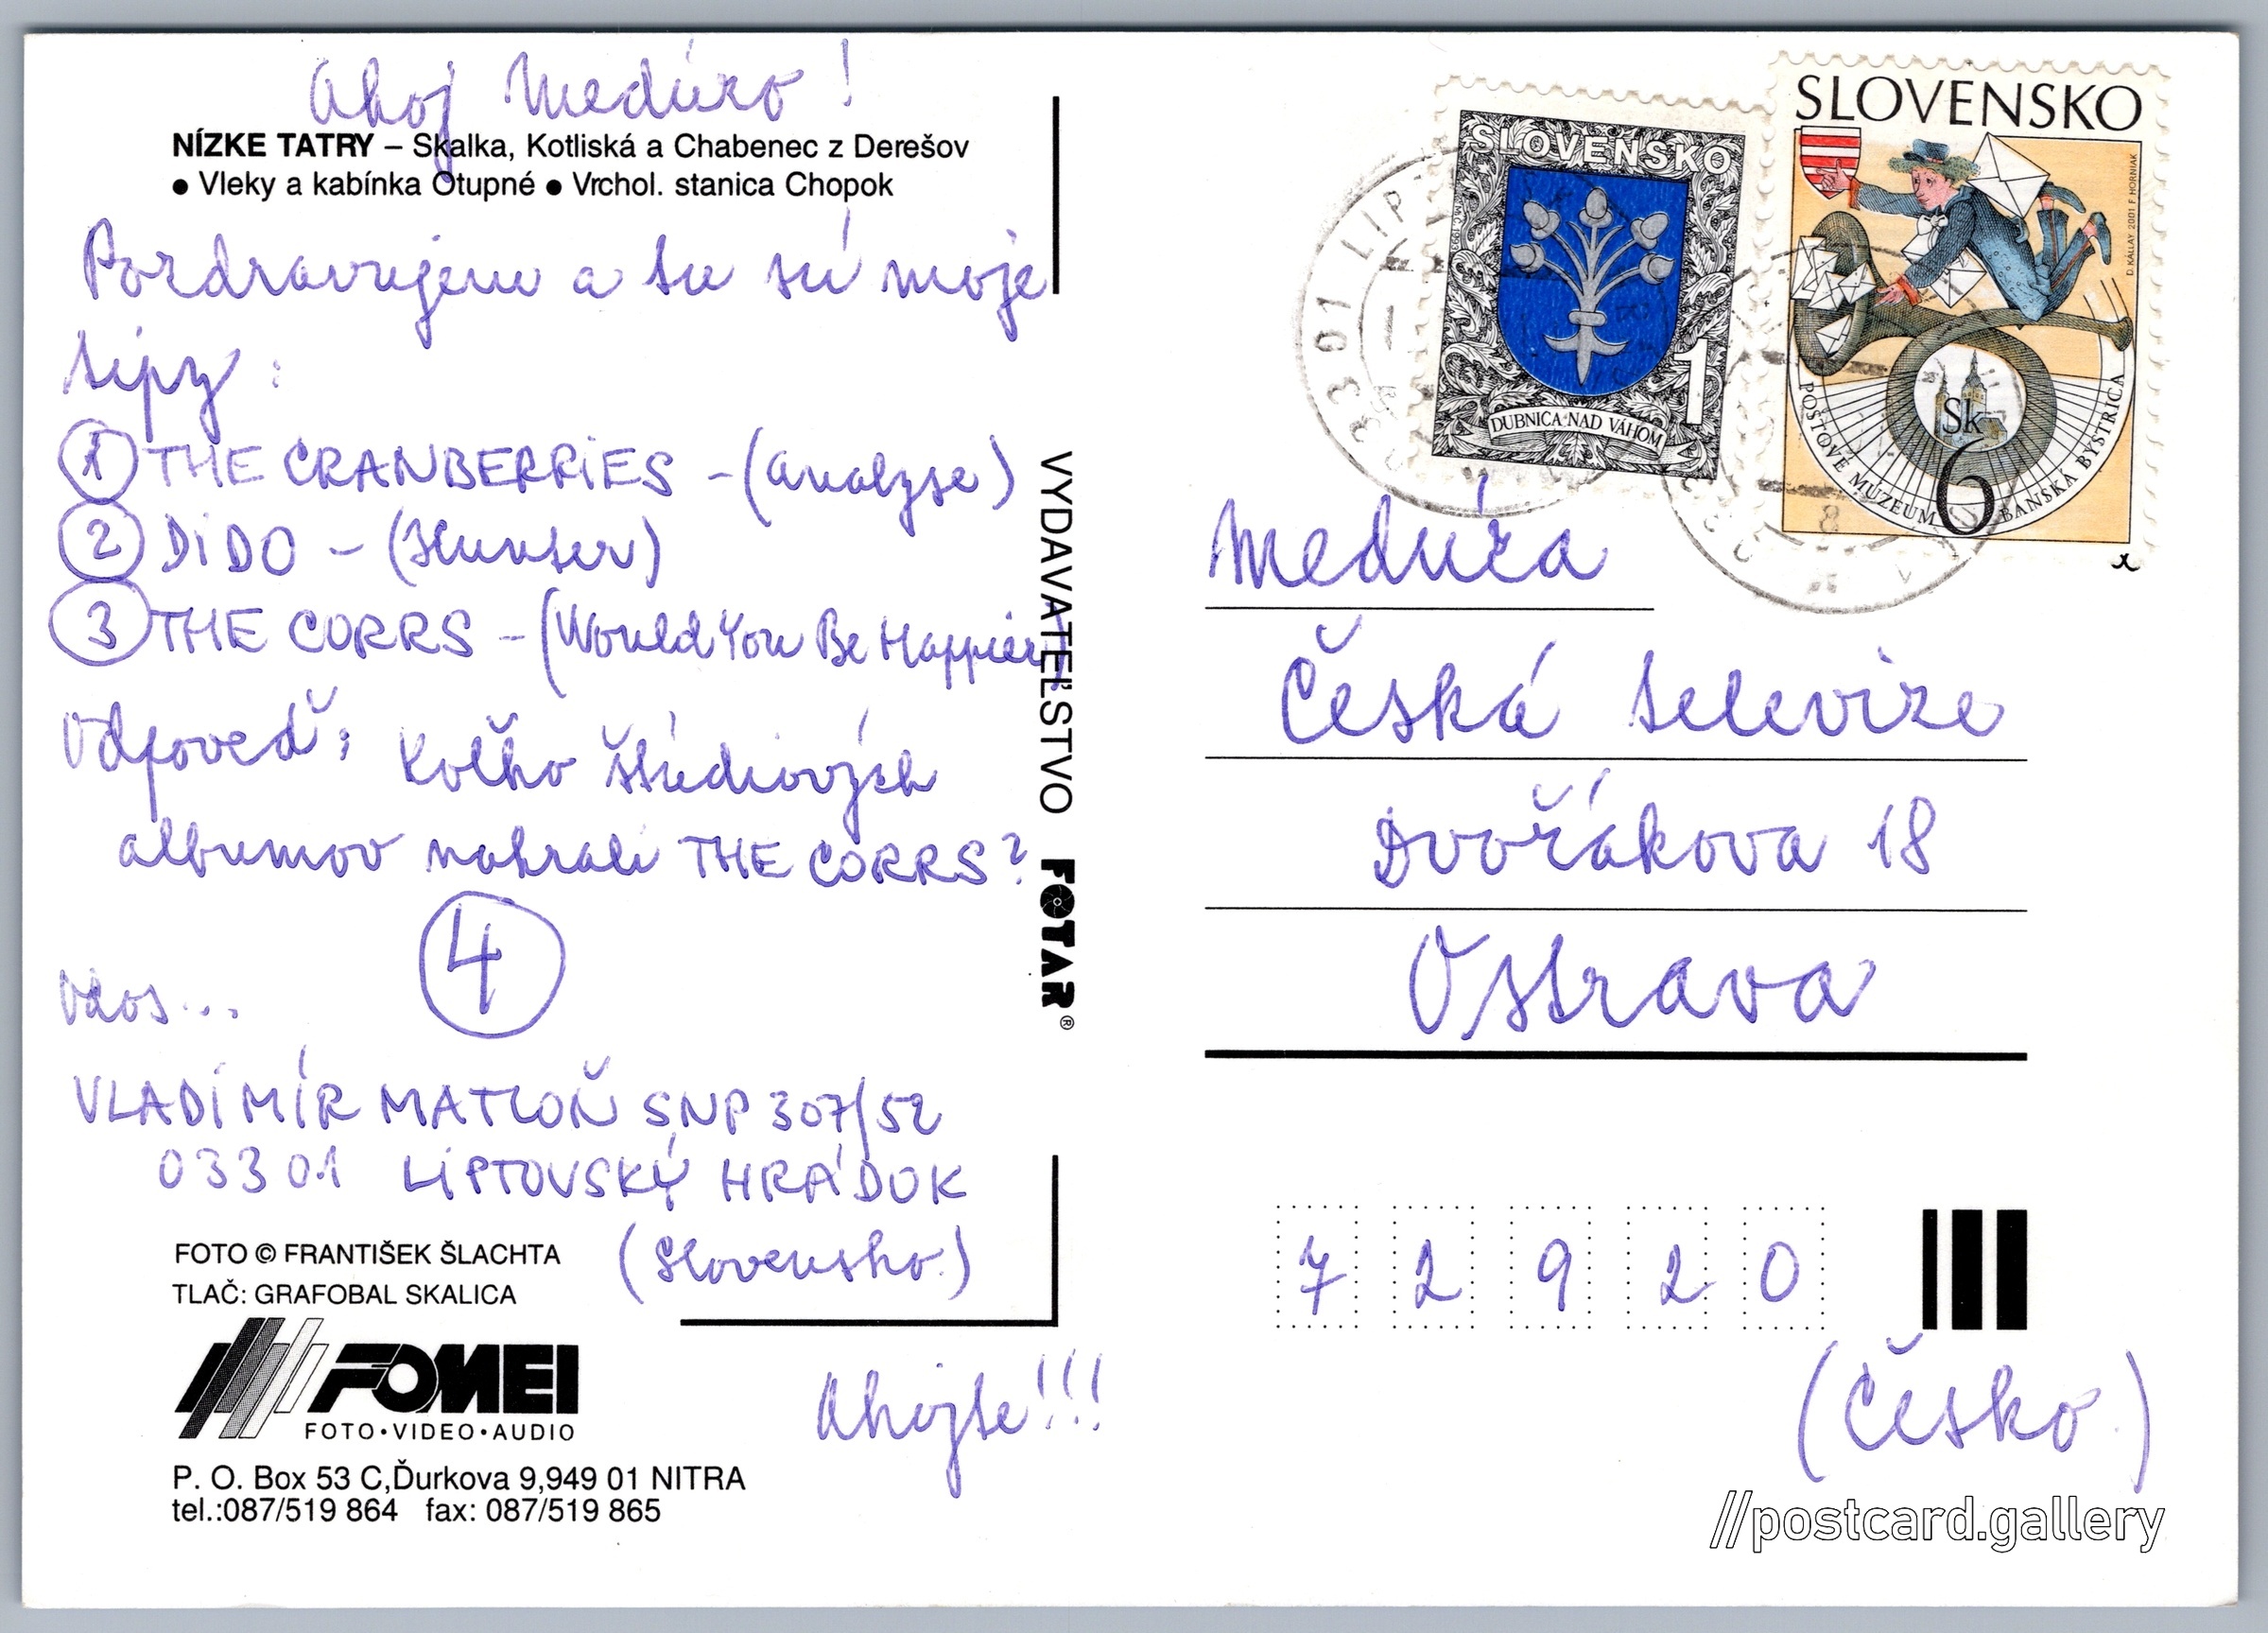 Ahoj Medúzo!
NÍZKE TATRY – Skalka, Kotliská a Chabenec z Derešov
● Vleky a kabínka Otupné ● Vrchol. stanica Chopok
Pozdravujem a tu sú moje
tipy:
1 THE CRANBERRiES – (Analyse)
2 DiDO – (Hunter)
3 THE CORRS – (Would You Be Happier)
Odpoveď: Koľko štúdiových
albumov nahrali THE CORRS?
4
Váos...
VLADiMÍR MATLOŇ SNP 307/52
033 01 LiPTOVSKÝ HRÁDOK
(Slovensko)
FOTO © FRANTIŠEK ŠLACHTA
TLAČ: GRAFOBAL SKALICA
FOMEI
FOTO•VIDEO•AUDIO
P. O. Box 53 C,Ďurkova 9,949 01 NITRA
tel.:087/519 864 fax: 087/519 865
Ahojte!!!
VYDAVATEĽSTVO FOTAR®
SLOVENSKO
DUBNICA NAD VÁHOM
1
SLOVENSKO
D. KÁLLAY 2001 F. HORNIAK
Sk
6
POŠTOVÉ MÚZEUM BANSKÁ BYSTRICA
033 01 LIPT
Medúza
Česká televize
Dvořákova 18
Ostrava
7 2 9 2 0
(Česko)
//postcard.gallery